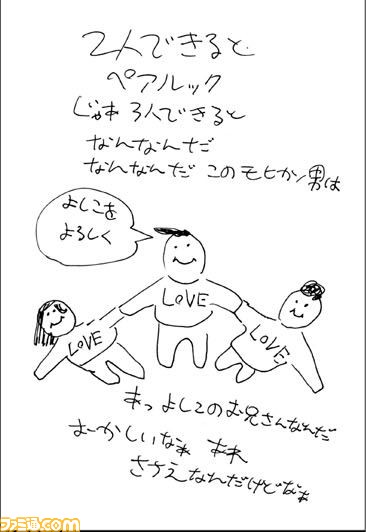 2人できると
ペアルック
じゃあ 3人できると
なんなんだ
なんなんだ このモヒカン男は
よしこを
よろしく
LOVE
LOVE
LOVE
あっ よしこのお兄さんなんだ
おーかしいなぁ あれ
さちえなんだけどなぁ
ファミ通.com